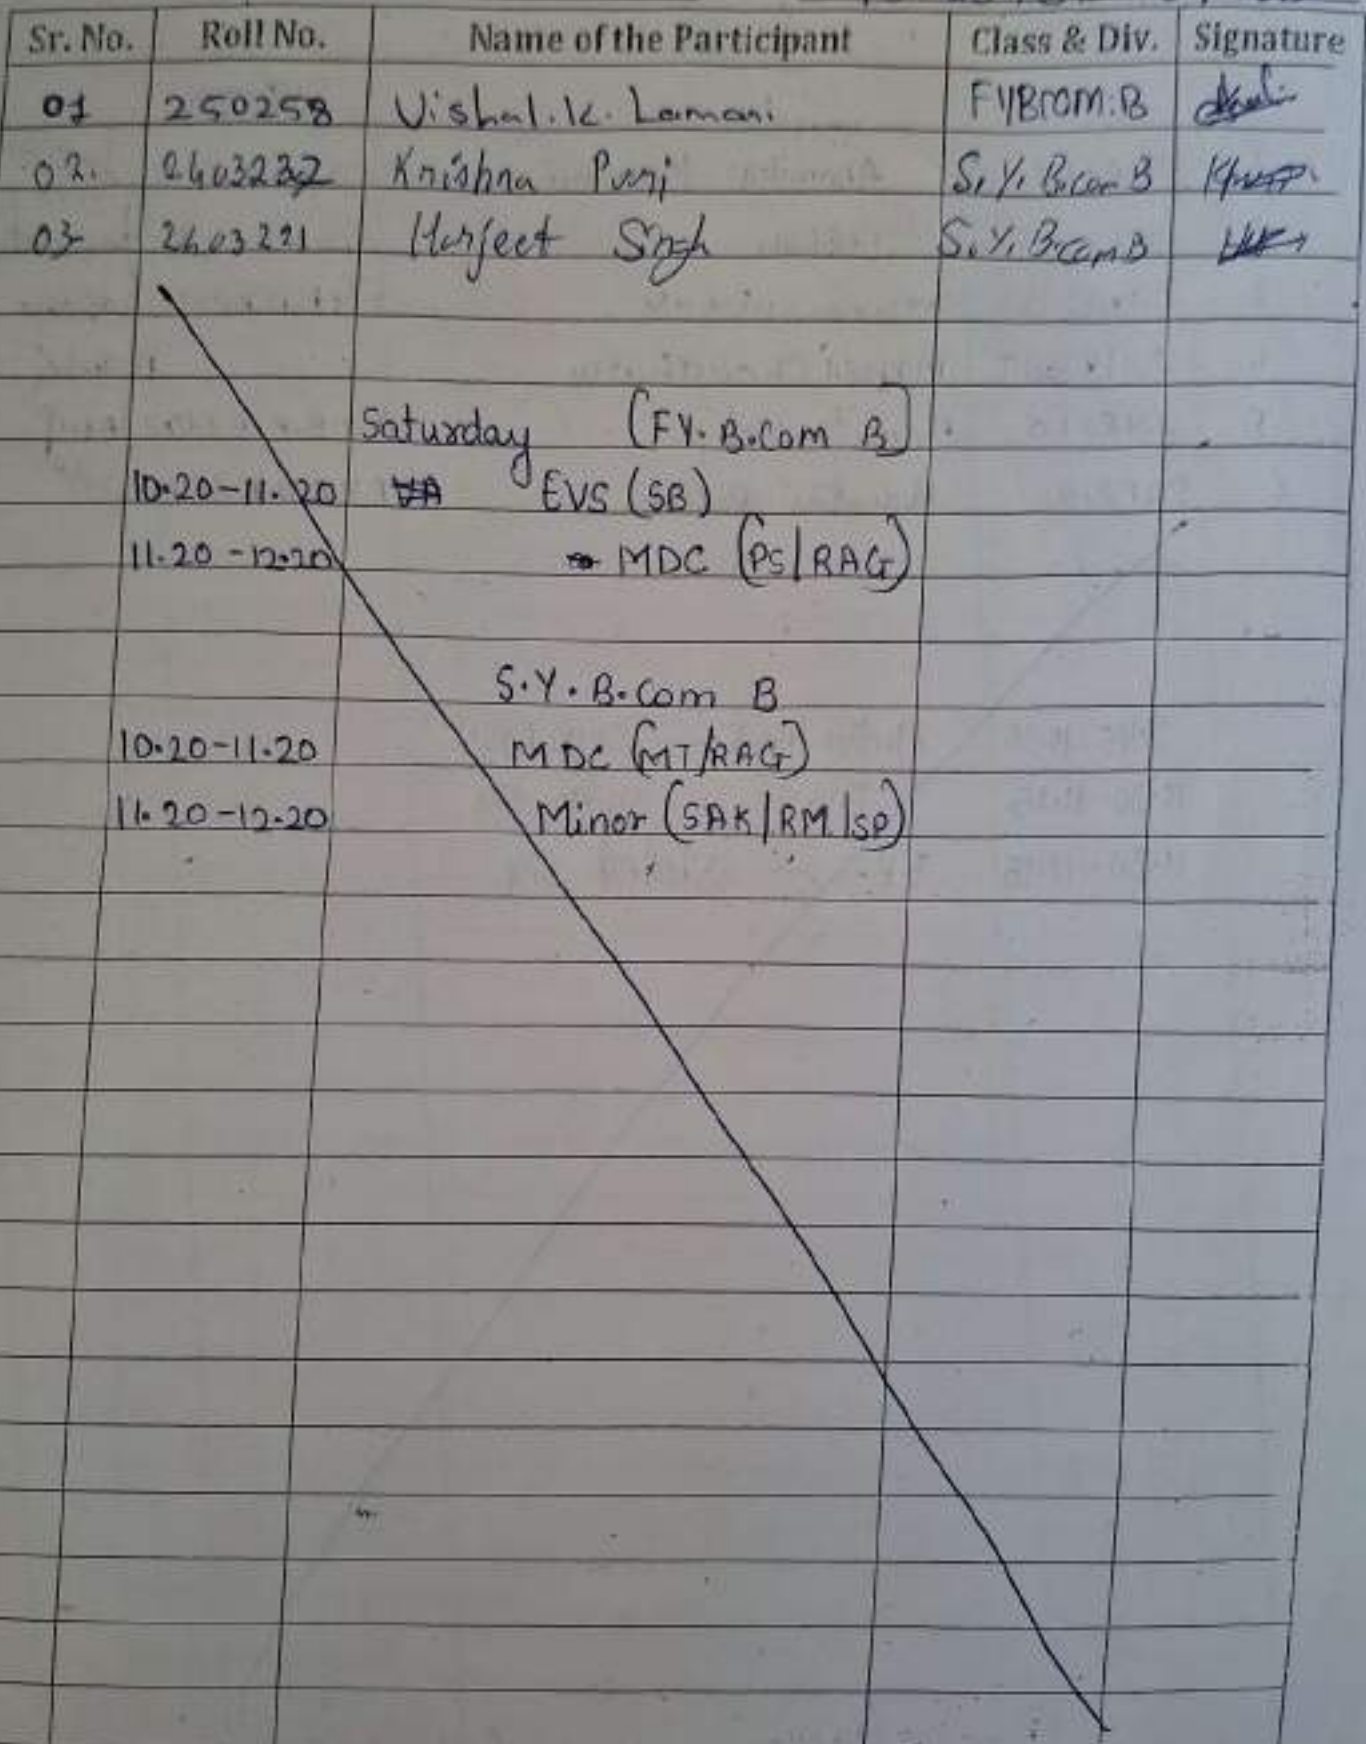 Sr. No. Roll No. Name of the Participant Class & Div. Signature
01 250258 Vishal.K. Lamani FYBCOM.B
02. 2403232 Krishna Puri S.Y. B.com B
03 2403221 Harjeet Singh S.Y. B.com B
Saturday (FY. B.Com B)
10.20-11.20 EVS (SB)
11.20-12.20 MDC (PS/RAG)
S.Y.B.Com B
10.20-11.20 MDC (MT/RAG)
11.20-12.20 Minor (SAK/RM/SP)